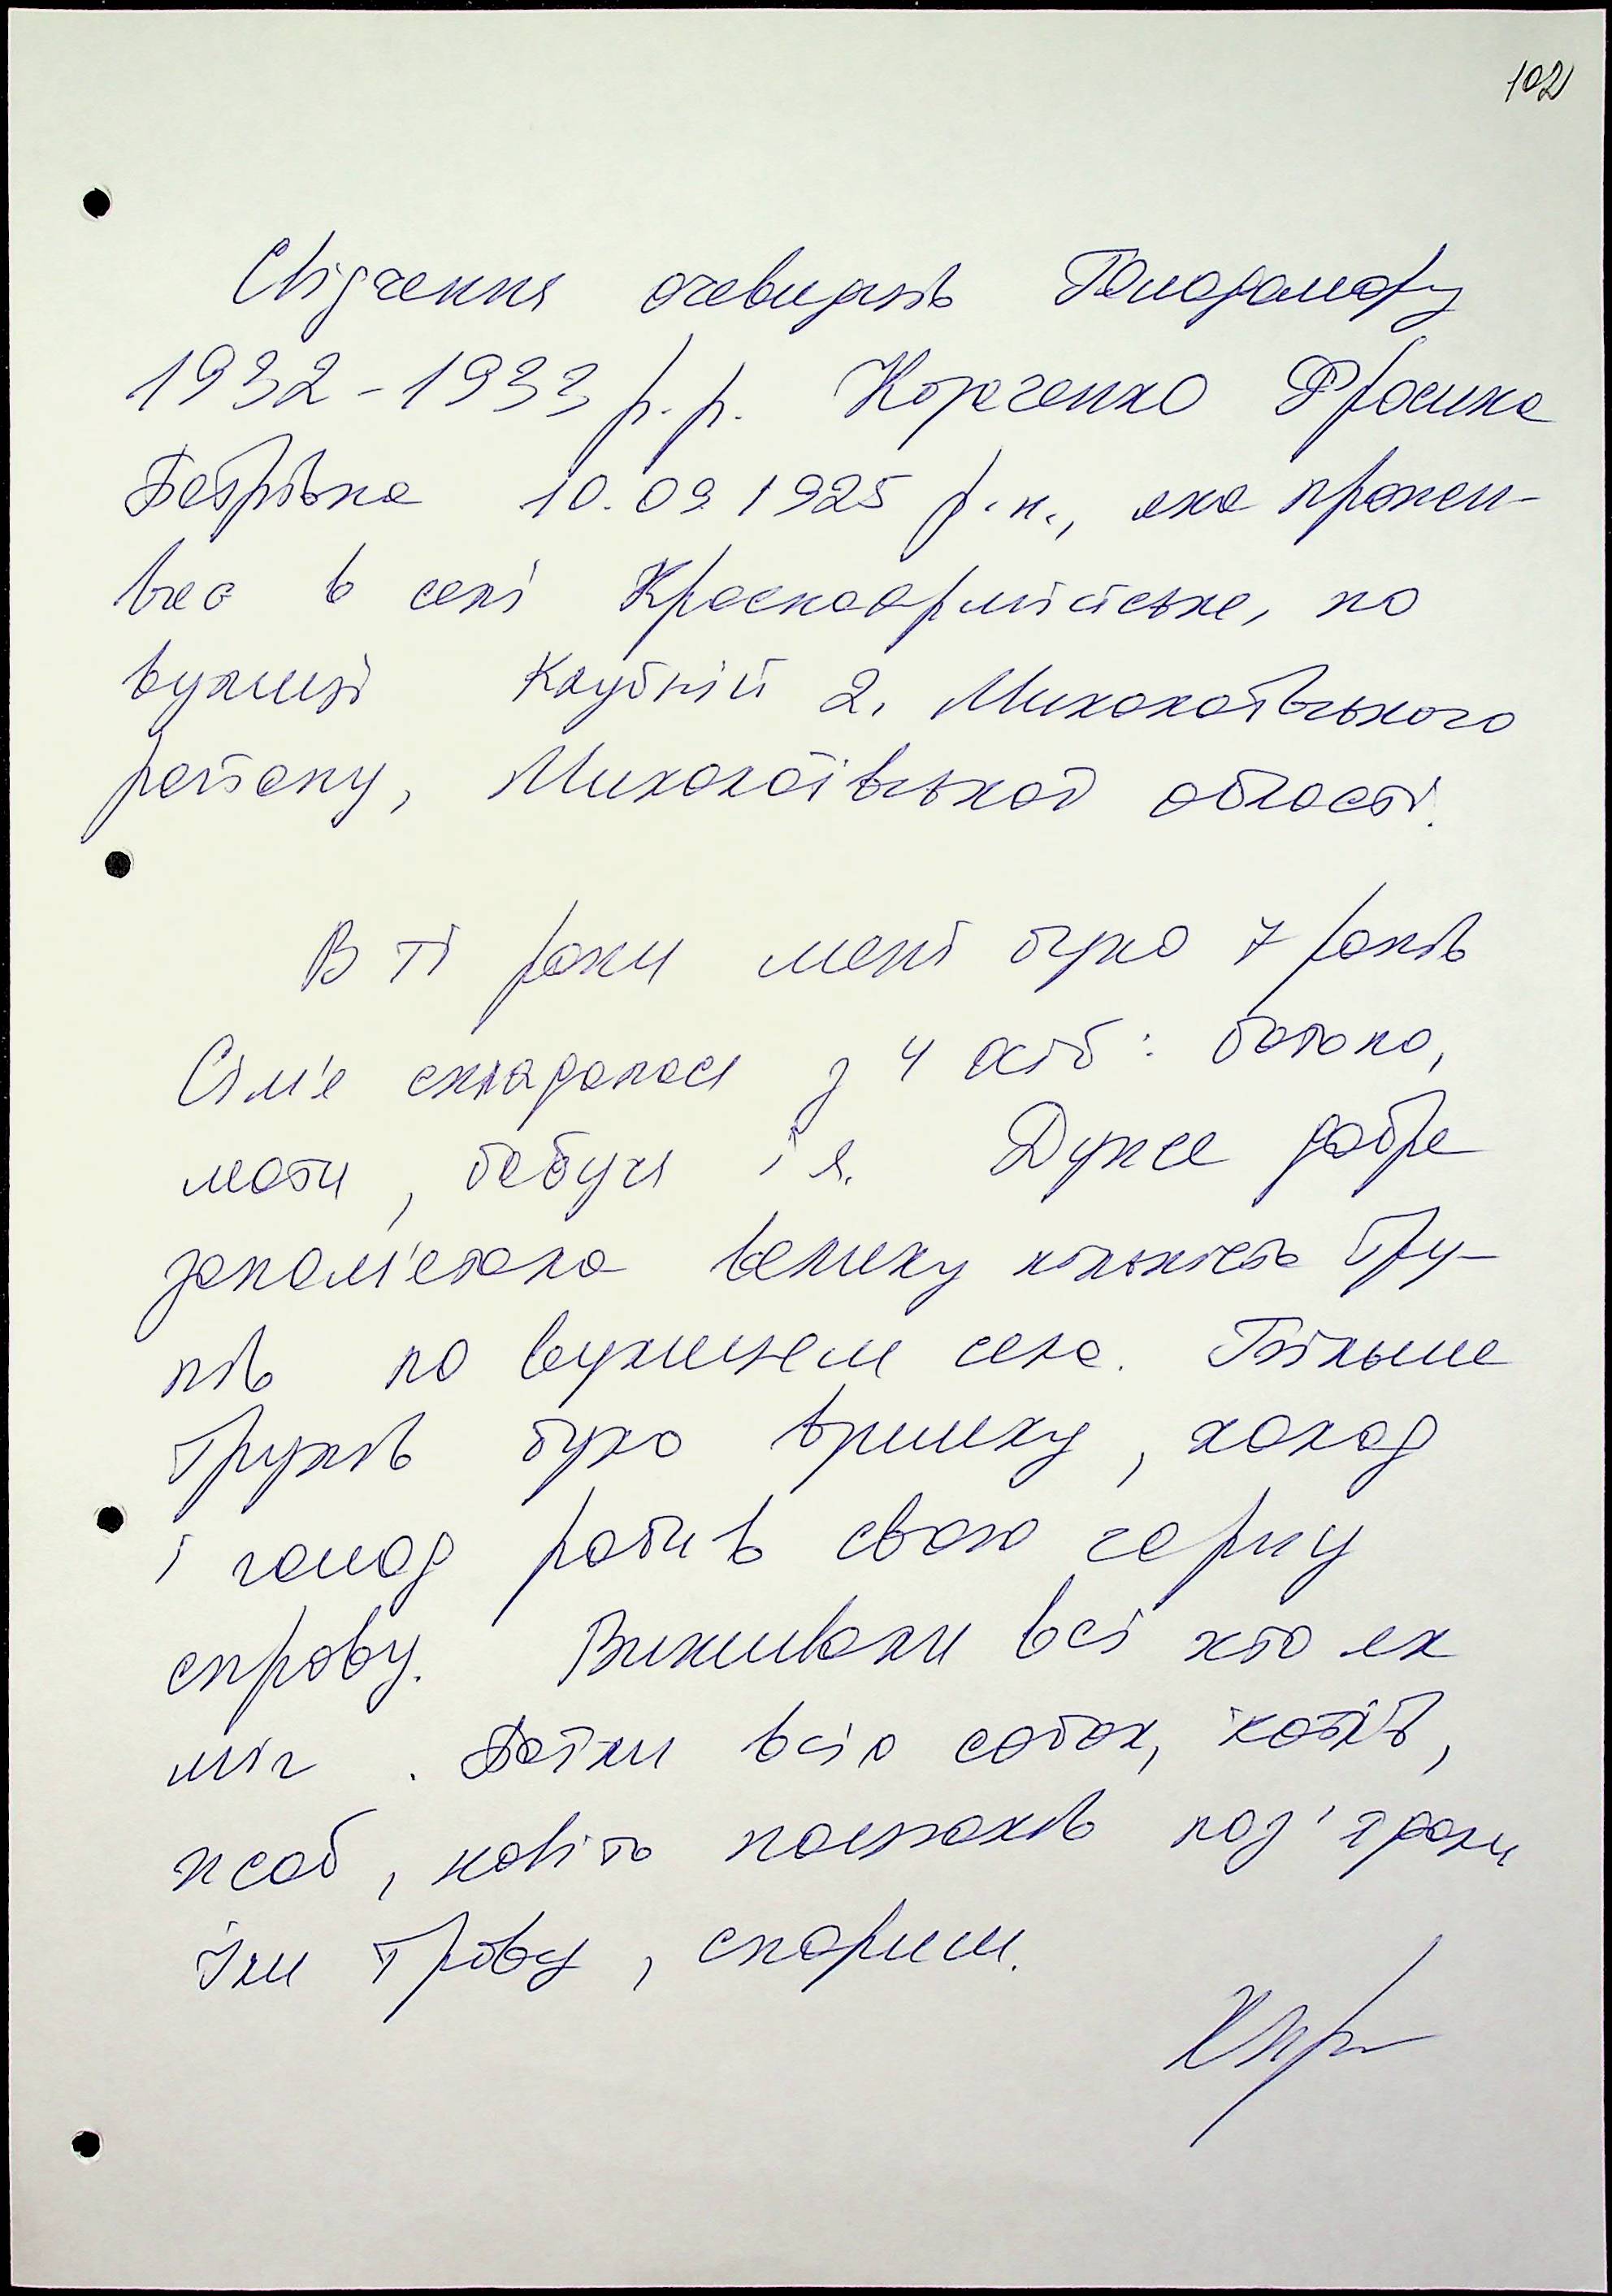 102
Свідчення очевидців Голодомору
1932-1933 р.р. Коряченко Фросина
Петрівна 10.09.1925 р.н., яка прожи-
ває в селі Красноармійське, по
вулиці Клубній 2, Миколаївського
району, Миколаївської області.
В ті роки мені було 7 років
Сім'я складалася з 4 осіб: батько,
мати, бабуся і я. Дуже добре
запам'ятала велику кількість тру-
пів по вулицям села. Більше
трупів було взимку, холод
і голод робив свою чорну
справу. Виживали всі хто як
міг. Поїли всіх собак, котів,
жаб, навіть поз'їдали
їли траву, спориш.